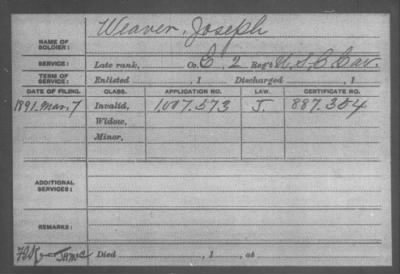 Weaver, Joseph
NAME OF SOLDIER:
SERVICE: Late rank, Co. E, 2 Reg't U.S.C. Cav.
TERM OF SERVICE: Enlisted , 1 Discharged , 1
DATE OF FILING. CLASS. APPLICATION NO. LAW. CERTIFICATE NO.
1891. Mar. 7 Invalid, 1,007.573 J. 887.304
Widow,
Minor,
ADDITIONAL SERVICES:
REMARKS:
Died , 1 , at